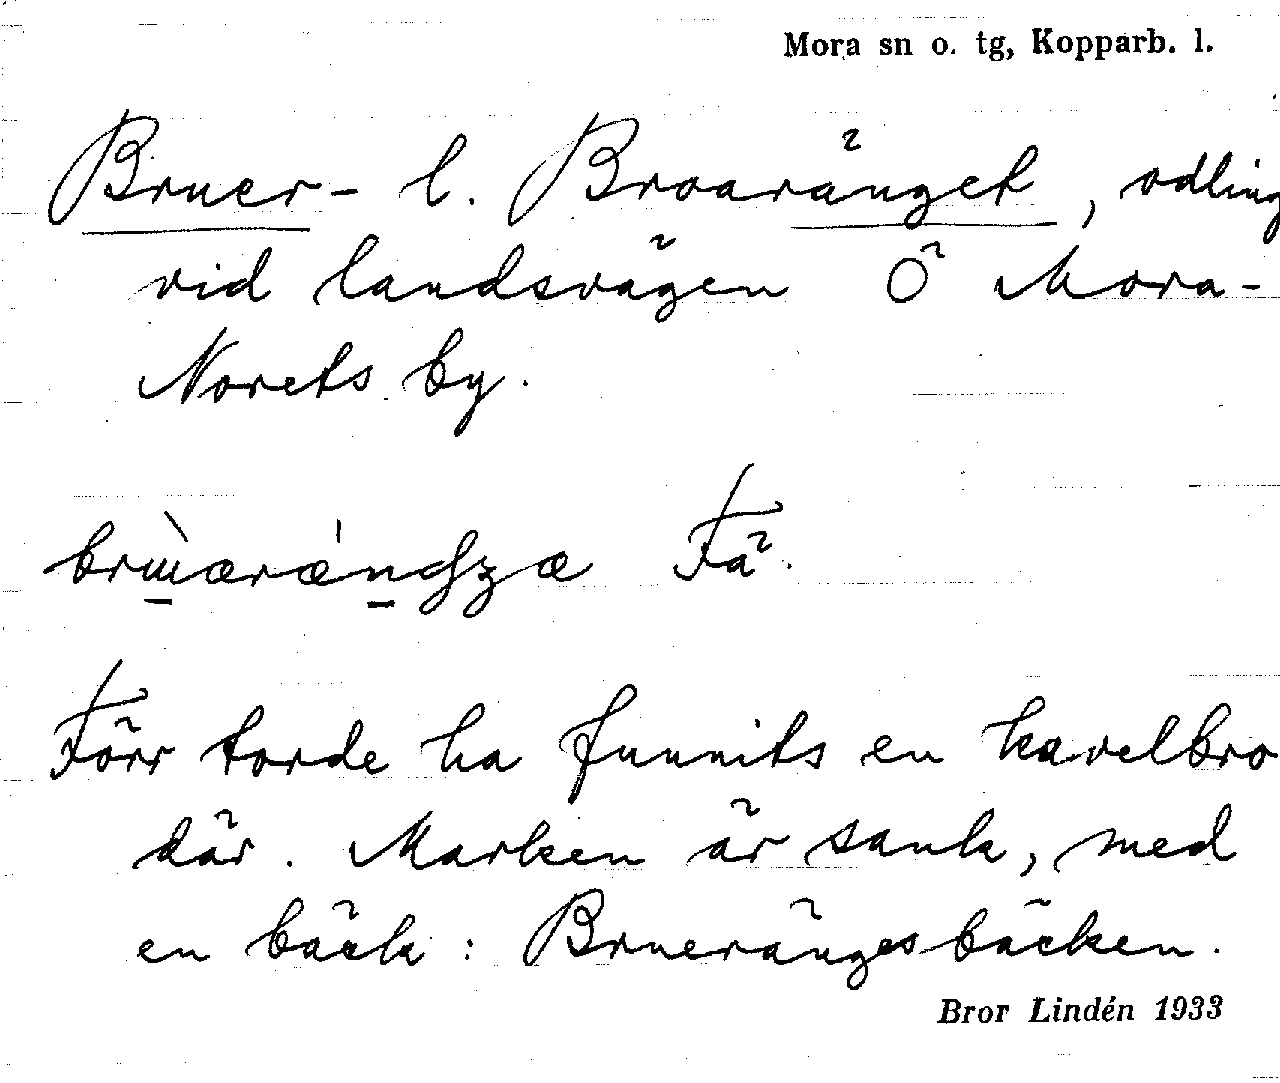 Mora sn o. tg, Kopparb. l.
Bruer- l. Broaränget, odling
vid landsvägen Ö Mora-
Norets by.
Fä.
Förr torde ha funnits en kavelbro
där. Marken är sank, med
en bäck: Bruerängesbäcken.
Bror Lindén 1933